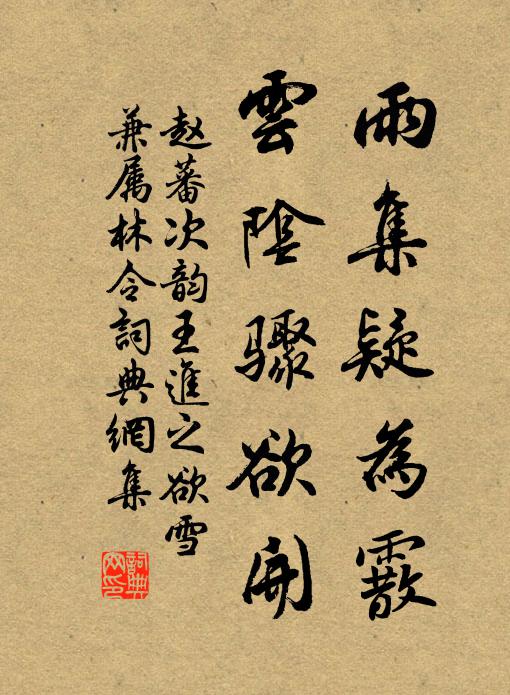 雨集疑為霰
雲陰驟欲開
赵蕃次韵王進之欲雪
兼属林令詞典網集
詞典网印